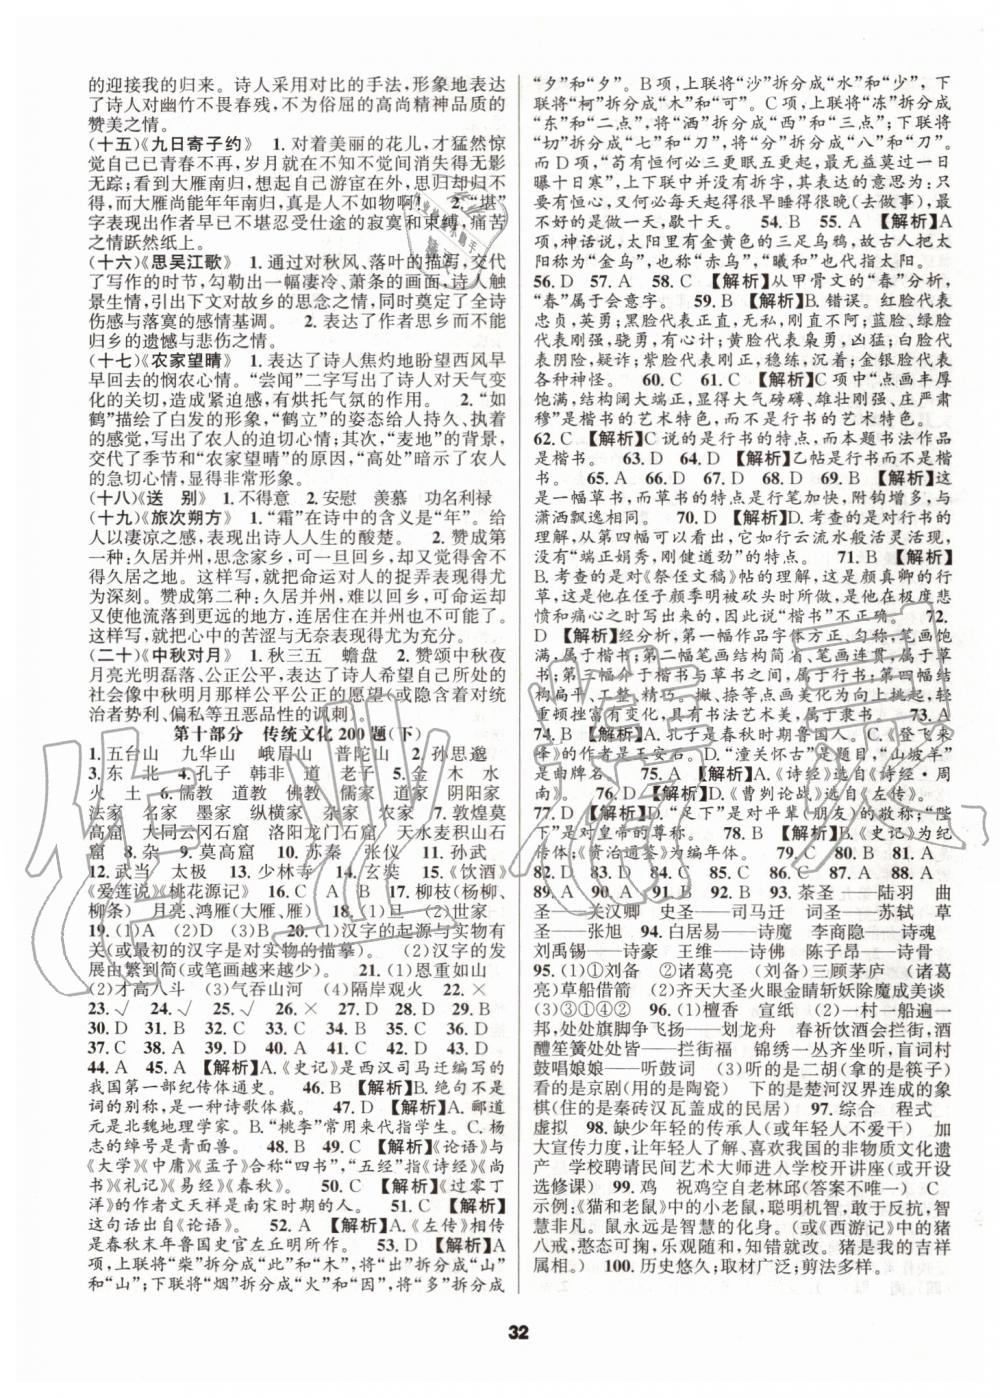 的迎接我的归来。诗人采用对比的手法,形象地表达
了诗人对幽竹不畏春残,不为俗屈的高尚精神品质的
赞美之情。
(十五)《九日寄子约》 1.对着美丽的花儿,才猛然惊
觉自己已青春不再,岁月就在不知不觉间消失得无影
无踪;看到大雁南归,想起自己游宦在外,思归却不
得,而大雁尚能年年南归,真是人不如物啊! 2.“堪”
字表现出作者早已不堪忍受仕途的寂寞和束缚,痛苦
之情跃然纸上。
(十六)《思吴江歌》 1.通过对秋风、落叶的描写,交代
了写作的时节,勾勒出一幅凄冷、萧条的画面,诗人触
景生情,引出下文对故乡的思念之情,同时奠定了全诗
伤感与落寞的感情基调。 2.表达了作者思乡而不能
归乡的遗憾与悲伤之情。
(十七)《农家望晴》 1.表达了诗人焦灼地盼望西风早
早回去的悯农心情。“尝闻”二字写出了诗人对天气变
化的关切,造成紧迫感,有烘托气氛的作用。 2.“如
鹤”描绘了白发的形象,“鹤立”的姿态给人持久、执着
的感觉,写出了农人的迫切心情;其次,“麦地”的背景,
交代了季节和“农家望晴”的原因,“高处”暗示了农人
的急切心情,显得非常形象。
(十八)《送 别》 1.不得意 2.安慰 羡慕 功名利禄
(十九)《旅次朔方》 1.“霜”在诗中的含义是“年”。给
人以凄凉之感,表现出诗人人生的酸楚。 2.赞成第
一种:久居并州,思念家乡,可一旦回乡,却又觉得舍不
得久居之地。这样写,就把命运对人的捉弄表现得尤
为深刻。赞成第二种:久居并州,难以回乡,可命运却
又使他流落到更远的地方,连居住在并州也不可能了。
这样写,就把心中的苦涩与无奈表现得尤为充分。
(二十)《中秋对月》 1.秋三五 蟾盘 2.赞颂中秋夜
月亮光明磊落、公正公平;表达了诗人希望自己所处的
社会像中秋明月那样公平公正的愿望(或隐含着对统
治者势利、偏私等丑恶品性的讽刺)。
第十部分 传统文化200题(下)
1.五台山 九华山 峨眉山 普陀山 2.孙思邈
3.东 北 4.孔子 韩非 道 老子 5.金 木 水
火 6.儒教 道教 佛教 儒家 道家 阴阳家
法家 名家 墨家 纵横家 杂家 农家 7.敦煌莫
高窟 大同云冈石窟 洛阳龙门石窟 天水麦积山石
窟 8.杂 9.莫高窟 10.苏秦 张仪 11.孙武
12.武当 太极 13.少林寺 14.玄奘 15.《饮酒》
《爱莲说》《桃花源记》 16.C A B 17.柳枝(杨柳、
柳条) 月亮、鸿雁(大雁、雁) 18.(1)旦 (2)世家
19.(1)A (2)B 20.(1)汉字的起源与实物有
关(或最初的汉字是对实物的描摹)。 (2)汉字的发
展由繁到简(或笔画越来越少)。 21.(1)恩重如山
(2)才高八斗 (3)气吞山河 (4)隔岸观火 22.×
23.√ 24.√ 25.√ 26.× 27.D 28.D 29.B
30.D 31.D 32.C 33.B 34.C 35.C 36.D
37.C 38.A 39.B 40.C 41.D 42.D 43.D
44.A 45.A 【解析】A.《史记》是西汉司马迁编写的
我国第一部纪传体通史。 46.B 【解析】B.绝句不是
词的别称,是一种诗歌体裁。 47.D 【解析】A.郦道
元是北魏地理学家。B.“桃李”常用来代指学生。C.杨
志的绰号是青面兽。 48.B 49.C 【解析】《论语》与
《大学》《中庸》《孟子》合称“四书”,“五经”指《诗经》《尚
书》《礼记》《易经》《春秋》。 50.C 【解析】《过零丁
洋》的作者文天祥是南宋时期的人。 51.C 【解析】
这句话出自《论语》。 52.A 【解析】A.《左传》相传
是春秋末年鲁国史官左丘明所作。 53.D 【解析】A
项,上联将“柴”拆分成“此”和“木”,将“出”拆分成“山”
和“山”;下联将“烟”拆分成“火”和“因”,将“多”拆分成
“夕”和“夕”。B项,上联将“沙”拆分成“水”和“少”,下
联将“柯”拆分成“木”和“可”。C项,上联将“冻”拆分成
“东”和“二点”,将“洒”拆分成“西”和“三点”;下联将
“切”拆分成“七”和“刀”,将“分”拆分成“八”和“刀”。
而D项,“苟有恒何必三更眠五更起,最无益莫过一日
曝十日寒”,上下联中并没有拆字,表达的意思为:只
要有恒心,又何必每天起得很早睡得很晚(去做事),最
不好的是做一天,歇十天。 54.B 55.A 【解析】A
项,神话说,太阳里有金黄色的三足乌鸦,故古人把太
阳称为“金乌”,也称“赤乌”,“曦和”也代指太阳。
56.D 57.A 58.C 【解析】从甲骨文的“春”分析,
“春”属于会意字。 59.B 【解析】B.错误。红脸代表
忠贞,英勇;黑脸代表正直,无私,刚不阿;蓝脸、绿脸
代表刚强,骁勇,有心计;黄脸代表枭雄,凶猛;白脸代
表阴险,疑诈;紫脸代表刚正,稳练,沉着;金银脸代表
各种神怪。 60.C 61.C 【解析】C项中“点画丰厚
饱满,结构阔大端正,显得大气磅礴、雄壮刚强、庄严肃
穆”是楷书的艺术特色,而不是行书的艺术特色。
62.C 【解析】C说的是行书的特点,而本题书法作品
是楷书。 63.D 64.D 【解析】乙帖是行书而不是楷
书。 65.A 66.C 67.B 68.B 69.D 【解析】这
是一幅草书,而草书的特点是行笔加快,附钩增多,与
潇洒飘逸相同。 70.D 【解析】D.考查的是对行书的
理解,从第四幅可以看出,它如行云流水般活灵活现,
没有“端正娟秀,刚健道劲”的特点。 71.B 【解析】
B.考查的是对《祭侄文稿》帖的理解,颜真卿的行
草,是他在侄子颜季明被砍头时所做,是他在极度悲
愤和痛心之时写出来的,因此说“楷书”不正确。 72.
D 【解析】经分析,第一幅作品字体方正、匀称,笔画饱
满,属于楷书;第二幅笔画结构简洁、大气,属于草
书;第三幅介于楷书与草书,属于行书;第四幅结构
扁平、工整、精巧。撇、捺等点画美化为向上挑起,轻
重顿挫富有变化,具有书法艺术美,属于隶书。 73.A
74.B 【解析】A.孔子是春秋时期鲁国人。C.《登飞来
峰》的作者是王安石。D.“潼关怀古”是题目,“山坡羊”
是曲牌名。 75.A 【解析】A.《诗经》选自《诗经·周
南》。 76.D 【解析】D.《曹刿论战》选自《左传》。
77.D 【解析】D.“足下”是对平辈(朋友)的敬称;“陛
下”是对皇帝的尊称。 78.B 【解析】B.《史记》为纪
传体;《资治通鉴》为编年体。 79.C 80.B 81.A
82.D 83.D 84.C 85.C 86.A 87.A 88.A
89.A 90.A 91.B 92.B 93.茶圣——陆羽 曲
圣——关汉卿 史圣——司马迁 词圣——苏轼 草
圣——张旭 94.白居易——诗魔 李商隐——诗魂
刘禹锡——诗豪 王维——诗佛 陈子昂——诗骨
95.(1)①刘备 ②诸葛亮 (刘备)三顾茅庐 (诸葛
亮)草船借箭 (2)齐天大圣火眼金睛斩妖除魔成美谈
(3)③①④② 96.(1)檀香 宣纸 (2)一村一船遍一
邦,处处旗脚争飞扬——划龙舟 春祈饮酒会社村,酒
醴笙簧处处皆——扛街福 锦绣一丛齐坐听,盲词村
鼓唱娘娘——听鼓词 (3)听的是二胡(拿的是筷子)
看的是京剧(用的是陶瓷) 下的是楚河汉界连成的象
棋(住的是秦砖汉瓦盖成的民居) 97.综合 程式
虚拟 98.缺少年轻的传承人(或年轻人不爱干) 加
大宣传力度,让年轻人了解、喜欢我国的非物质文化遗
产 学校聘请民间艺术大师进入学校开讲座(或开设
选修课) 99.鸡 祝鸡空自老林邱(答案不唯一) C
示例:《猫和老鼠》中的小老鼠,聪明机智,敢于反抗,很
勇敢。鼠永远是智慧的化身。(或《西游记》中的猪
八戒,憨态可掬,乐观随和,知错就改。猪是我的吉祥
属相。) 100.历史悠久;取材广泛;剪法多样。
32